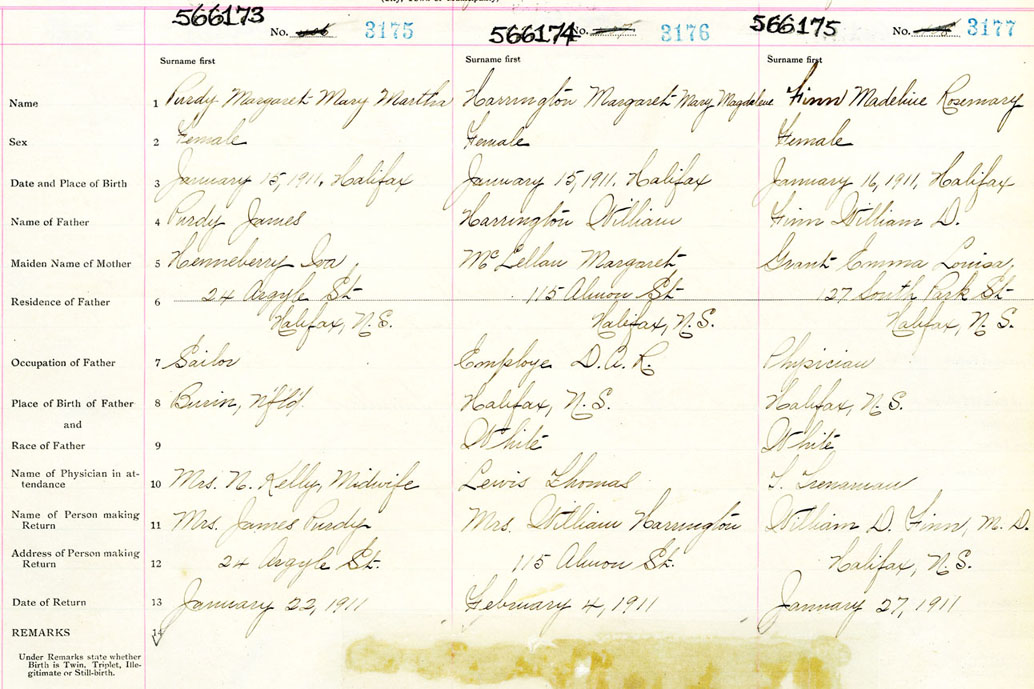 566173 No. 3175 566174 No. 3176 566175 No. 3177
Surname first Surname first Surname first
Name 1 Purdy Margaret Mary Martha Harrington Margaret Mary Magdalene Finn Madeline Rosemary
Sex 2 Female Female Female
Date and Place of Birth 3 January 15, 1911, Halifax January 15, 1911. Halifax January 16, 1911, Halifax
Name of Father 4 Purdy James Harrington William Finn William D.
Maiden Name of Mother 5 Henneberry Iva McLellan Margaret Grant Emma Louisa,
Residence of Father 6 24 Argyle St 115 Almon St 127 South Park St
Halifax, N.S. Halifax, N.S. Halifax, N.S.
Occupation of Father 7 Sailor Employe D.A.R. Physician
Place of Birth of Father 8 Burin, Nfld. Halifax, N.S. Halifax, N.S.
and
Race of Father 9 White White
Name of Physician in at-
tendance 10 Mrs. N. Kelly, Midwife Lewis Thomas
Name of Person making
Return 11 Mrs. James Purdy Mrs. William Harrington William D. Finn, M.D.
Address of Person making
Return 12 24 Argyle St. 115 Almon St. Halifax, N.S.
Date of Return 13 January 22, 1911 February 4, 1911 January 27, 1911
REMARKS 14
Under Remarks state whether
Birth is Twin, Triplet, Ille-
gitimate or Still-birth.